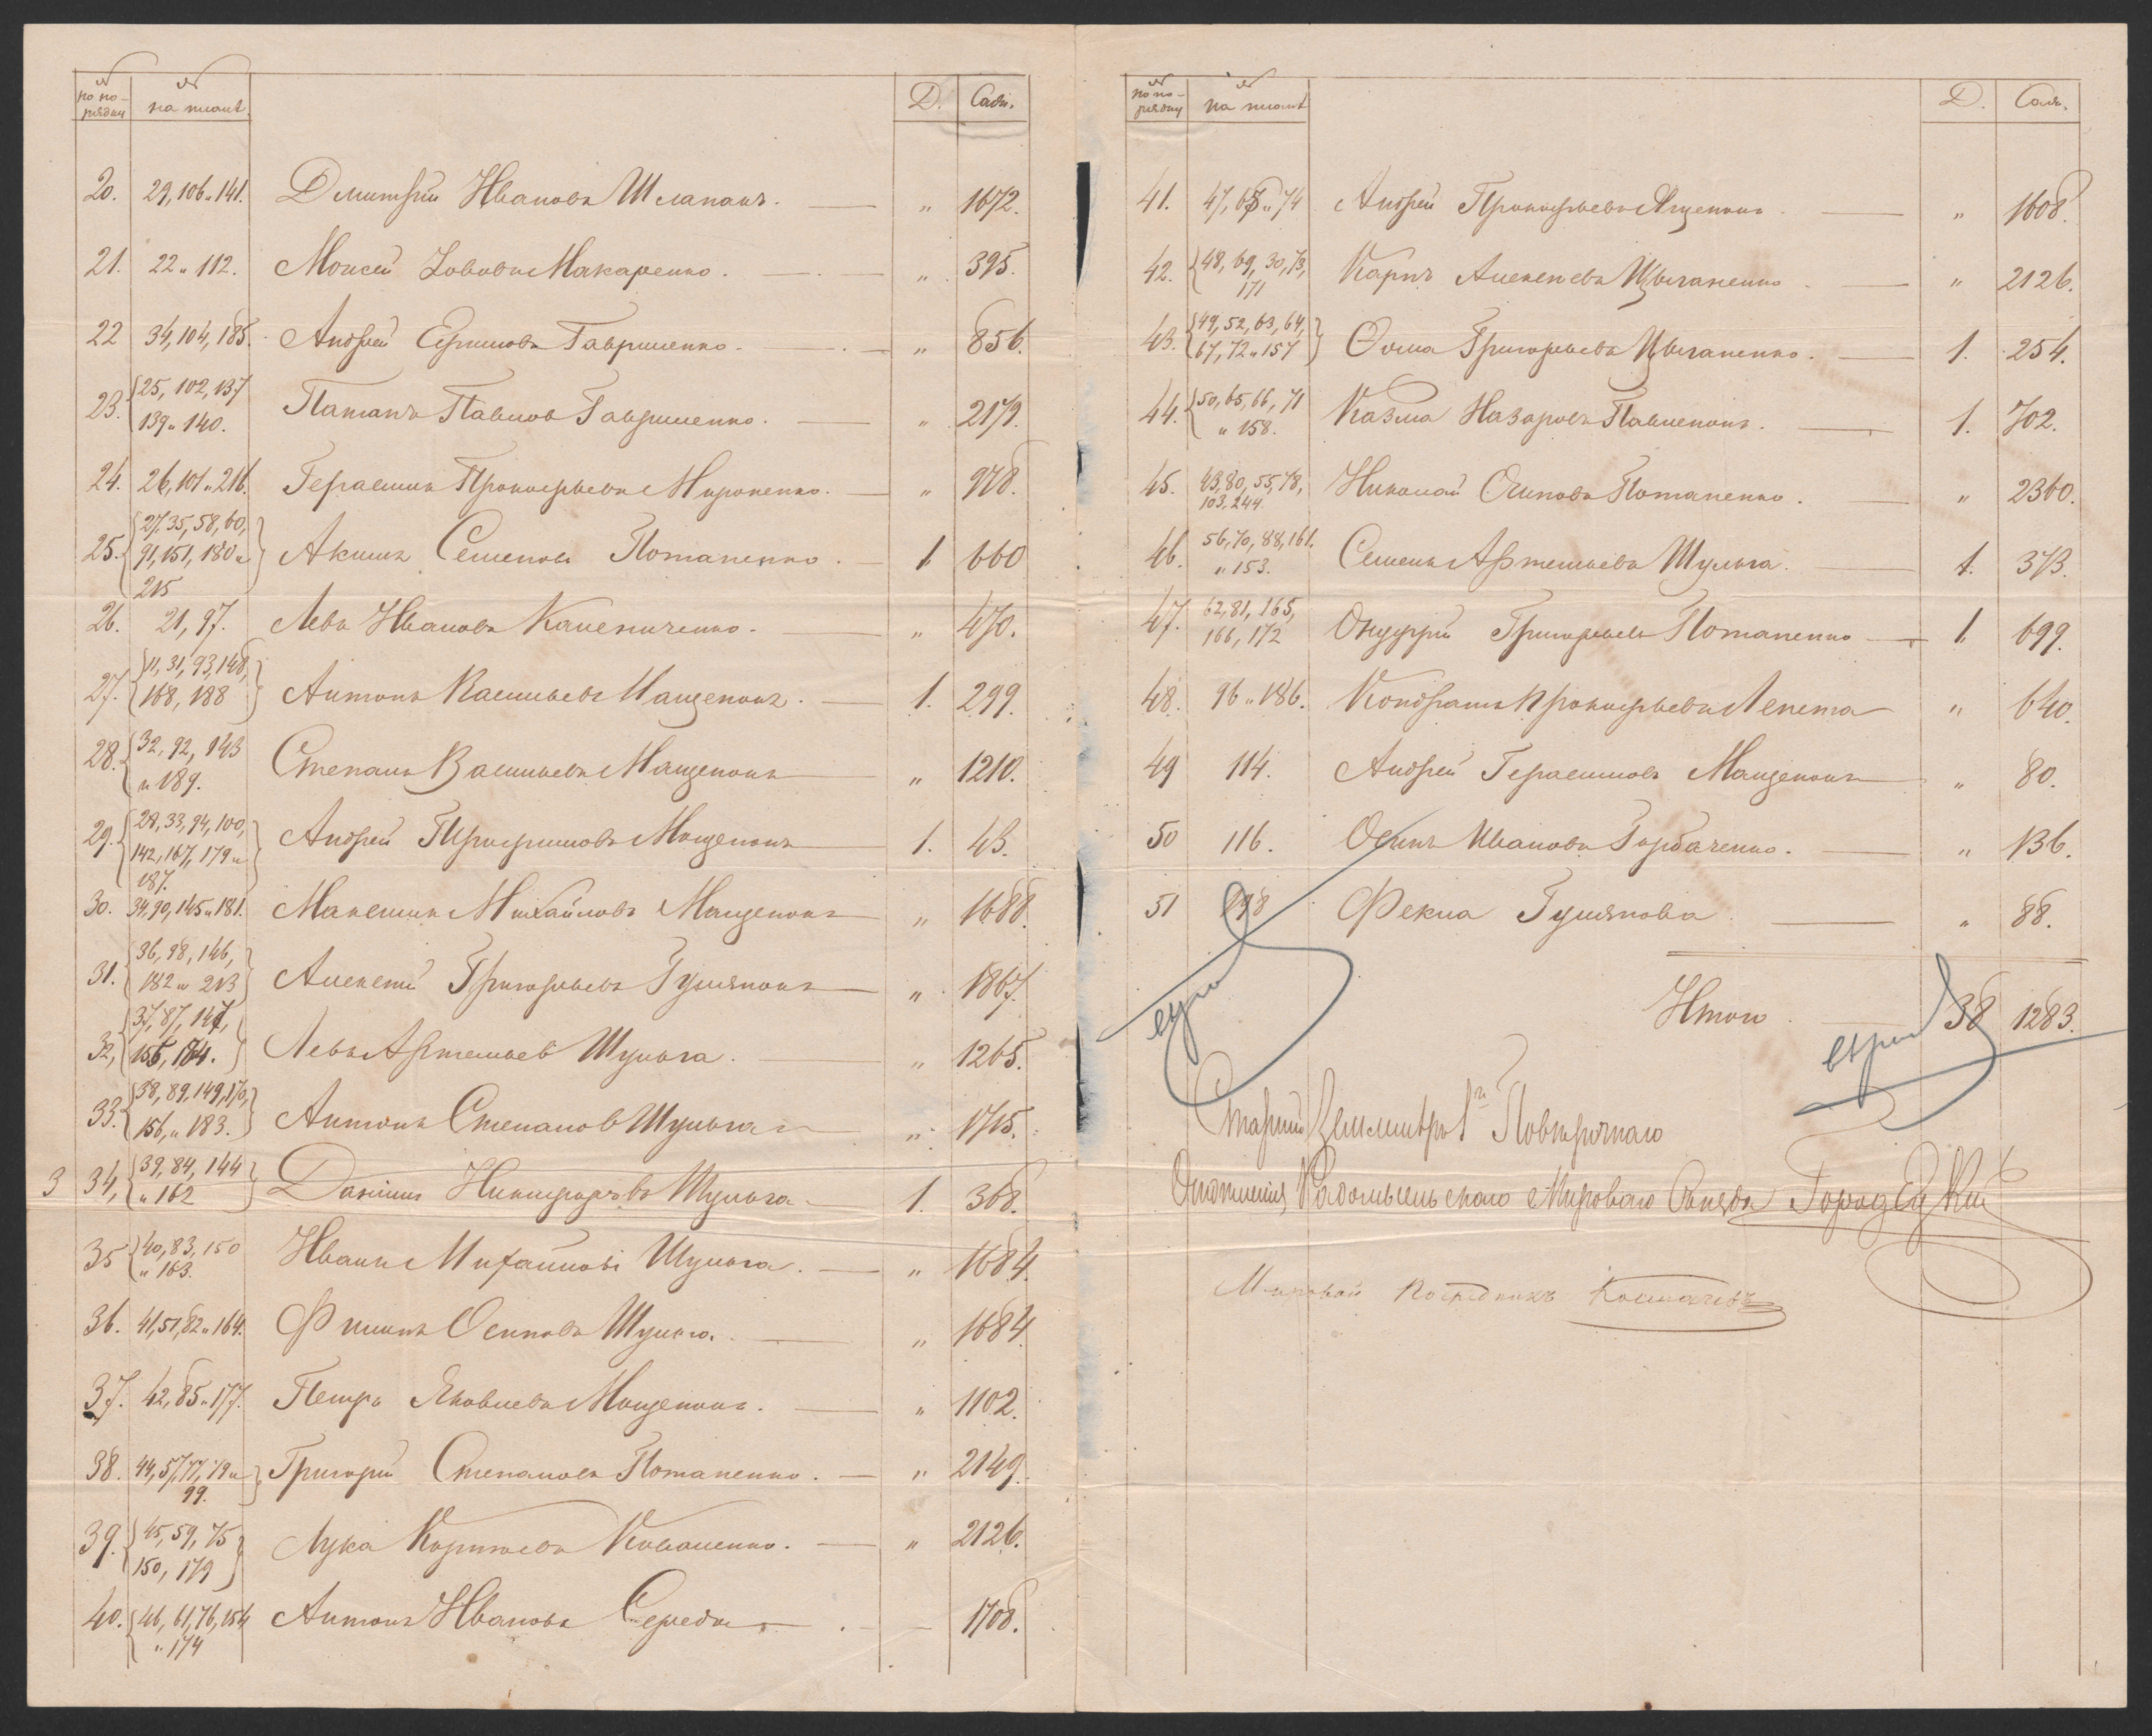 № по порядку № на планѣ Д. Саж.
20. 29, 106 и 141. Дмитрій Ивановъ Шлапакъ. „ 1672.
21. 22 и 112. Моисей Зововъ Макаренко. „ 395.
22 34, 104, 185. Андрей Ефимовъ Гавриленко. „ 856.
23. 25, 102, 137
139 и 140. Потапъ Павлов Гавриленко. „ 2179.
24. 26, 101 и 216. Герасимъ Прокофьевъ Мироненко. „ 978.
25. 27, 35, 58, 60,
91, 151, 180 и Акимъ Семеновъ Потапенко. 1 660
215
26. 21, 97. Левъ Ивановъ „ 470.
27. 11, 31, 93, 148,
168, 188 Антонъ Васильевъ Мащенокъ. 1. 299.
28. 32, 92, 143
и 189. Степанъ Васильевъ Мащенокъ „ 1210.
29. 28, 33, 94, 100,
142, 167, 179 и Андрей Трофимовъ Мащенокъ 1. 43.
187.
30. 34, 90, 145 и 181. Максимъ Михайловъ Мащенокъ „ 1688.
31. 36, 98, 146,
182 и 213 Алексей Григорьевъ Гулянокъ „ 1867.
32, 37, 87, 147,
155, 184. Левъ Артемьев Шульга. „ 1265.
33. 38, 89, 149, 170,
156, и 183. Антонъ Степанов Шульга „ 1715.
3 34, 39, 84, 144
и 162 Даніилъ Никифоровъ Шульга 1. 368.
35 40, 83, 150
и 163. Иванъ Михайловъ Шульга. „ 1684.
36. 41, 51, 82 и 164. Филипъ Осиповъ Шульга. „ 1684.
37. 42, 85 и 177. Петръ Яковлевъ Мащенокъ. „ 1102.
38. 44, 57, 77, 79 и Григорій Степановъ Потапенко. „ 2149.
99.
39. 45, 59, 75
150, 179 Лука Корнѣевъ Коваленко. „ 2126.
40. 46, 61, 76, 154
и 174 Антонъ Ивановъ Середа — 1708.
№ по порядку № на планѣ Д. Саж.
41. 47, 68 и 74 Андрей Прокофьевъ Ященко. „ 1608.
42. 48, 69, 30, 73,
171 Карпъ Алексеевъ Цыганенко. „ 2126.
43. 49, 52, 63, 64,
67, 72 и 157 Ѳома Григорьевъ Цыганенко. 1. 254.
44. 50, 65, 66, 71
и 158. Казма Назаровъ Павленокъ. 1. 702.
45. 43, 80, 55, 78,
103, 244. Николай Осиповъ Потапенко. „ 2360.
46. 56, 70, 88, 161.
и 153. Семенъ Артемьевъ Шульга. 1. 373.
47. 62, 81, 165,
166, 172 Онуфрій Григорьевъ Потапенко 1. 699.
48. 96 и 186. Кондратъ Прокофьевъ Лепета „ 640.
49 114. Андрей Герасимовъ Мащенокъ „ 80.
50 116. Осипъ Ивановъ Горбаченко. „ 136.
51 198 Фекла Гулянова „ 88.
Итого 38 1283.
Старшій Землемѣръ 1го Повѣрочнаго
Отдѣленія Радомысльскаго Мироваго Съѣзда Городецкій
Мировой Посредникъ